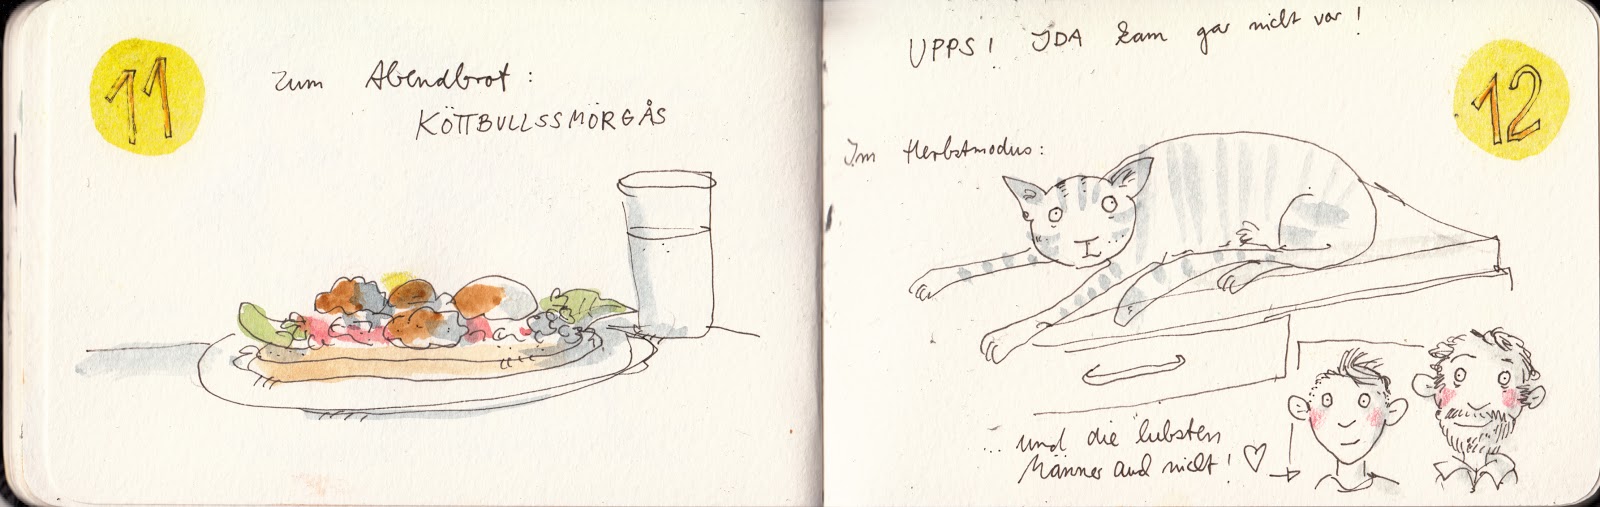 11
Zum Abendbrot:
KÖTTBULLSSMÖRGÅS
UPPS! IDA kam gar nicht vor!
12
Im Herbstmodus:
... und die liebsten
Männer auch nicht! ♡